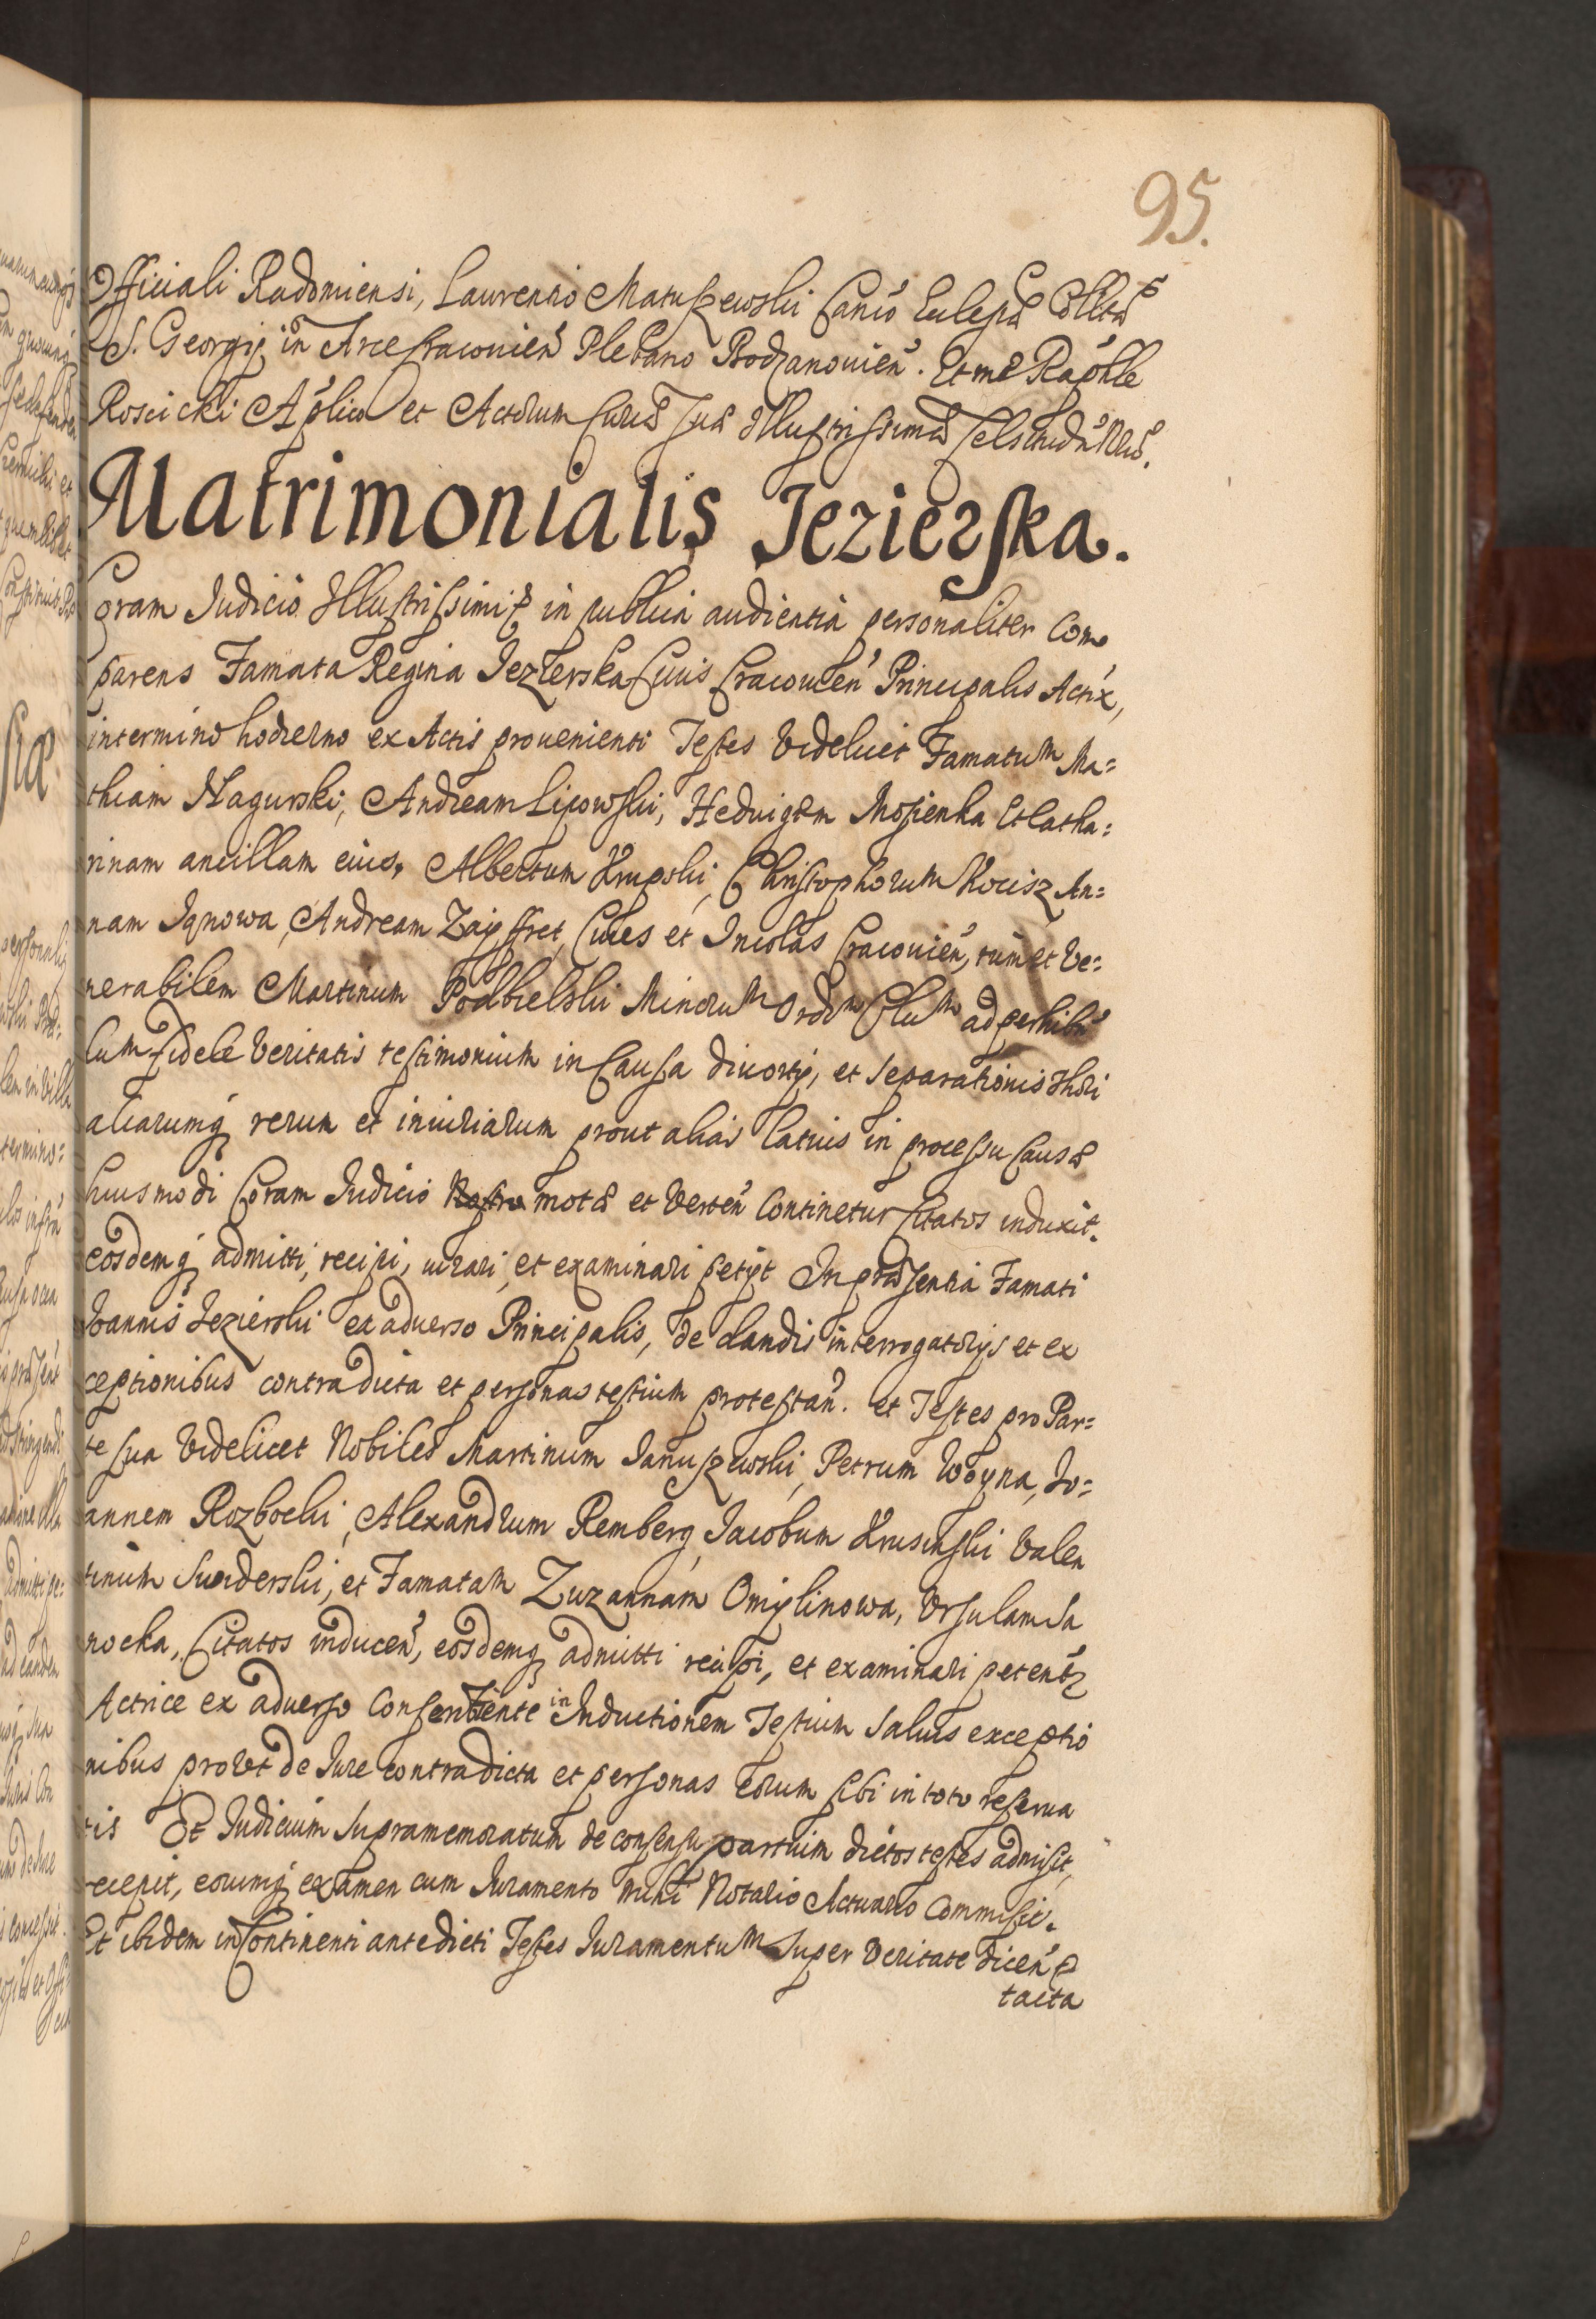 95.
Officiali Radomiensi, Laurentio Matuszewski Canco Ecclesiæ Colltæ
S. Georgij in Arce Cracovien Plebano Bodzanovien. Et me Raphle
Roscicki Aplico et Actorum Curiæ Suæ Illustrissimæ Celsitudnis
Matrimonialis Jezierska.
Coram Judicio Illustrissimi in publica audientia personaliter com
parens Famata Regina Jezierska Civis Cracovien Principalis Actrix,
in termino hodierno ex Actis provenienti Testes videlicet Famatum Ma=
thiam Nagurski, Andream Lipowski, Hedvigem Mosienka Et Catha=
rinam ancillam eius, Albertum Krupski, Christophorum Kocisz An=
nam Jgnowa, Andream Zayffret, Cives et Incolas Cracovien, tum et Ve=
nerabilem Martinum Podbielski Minorum Ordm Clum ad perhiben
dum fidele veritatis testimonium in Causa divortij, et separationis thori
aliarumq rerum et iniuriarum prout alias latius in processu Causæ
huiusmodi Coram Judicio Nostro motæ et verten continetur Citatos induxit.
eosdemq admitti, recipi, iurari, et examinari petijt In præsentia Famati
Joannis Jezierski ex adverso Principalis, de dandis interrogatorijs et ex
ceptionibus contra dicta et personas testium protestan. et Testes pro Par=
te sua videlicet Nobiles Martinum Januszewski, Petrum Woyna, Jo=
annem Rozbocki, Alexandrum Remberg, Jacobum Krusinski Valen
tinum Swiderski, et Famatam Zuzannam Omylinowa, Ursulam Sa
nocka, Citatos inducen, eosdemq admitti recipi, et examinari peten
Actrice ex adverso Consentiente in Inductionem Testium salvis exceptio
nibus provt de Jure contra dicta et personas eorum sibi in toto reserva
tis Et Judicium supramemoratum de consensu partium dictos testes admisit,
recepit, eorumq examen cum Juramento mihi Notario Actuario Commisit.
Et ibidem in continenti antedicti Testes Juramentum super veritate dicen
tacta